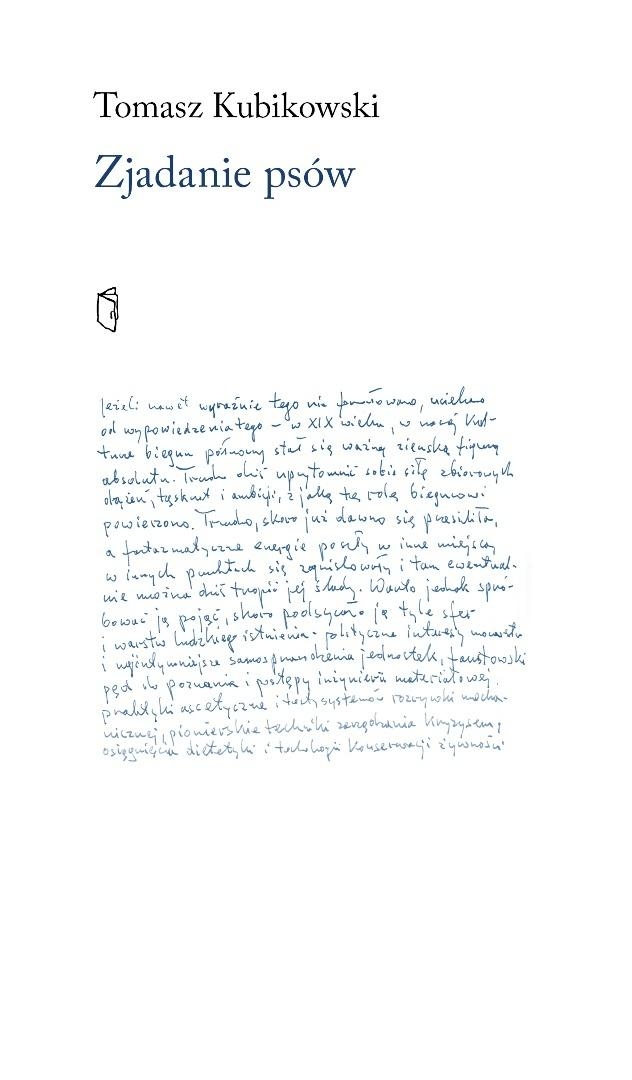 Tomasz Kubikowski
Zjadanie psów
Jeżeli nawet wyraźnie tego nie
od wypowiedzenia tego – w XIX wieku, w naszej kul-
turze biegun północny stał się ważną ziemską figurą
absolutu. Trudno dziś uprzytomnić sobie siłę zbiorowych
dążeń, tęsknot i ambicji, z jaką tę rolę biegunowi
powierzono. Trudno, skoro już dawno się przesiliła,
a fantazmatyczne energie poszły w inne miejsca,
w innych punktach się zogniskowały i tam ewentual-
nie można dziś tropić jej ślady. Warto jednak spró-
bować ją pojąć, skoro podsycało ją tyle sfer
i warstw ludzkiego istnienia: polityczne interesy mocarstw
i najintymniejsze samosprawdzenia jednostek, faustowski
pęd do poznania i postępy inżynierii materiałowej,
praktyki ascetyczne i systemów rozrywki mecha-
nicznej, pionierskie techniki zarządzania kryzysem,
osiągnięcia dietetyki i technologii konserwacji żywności